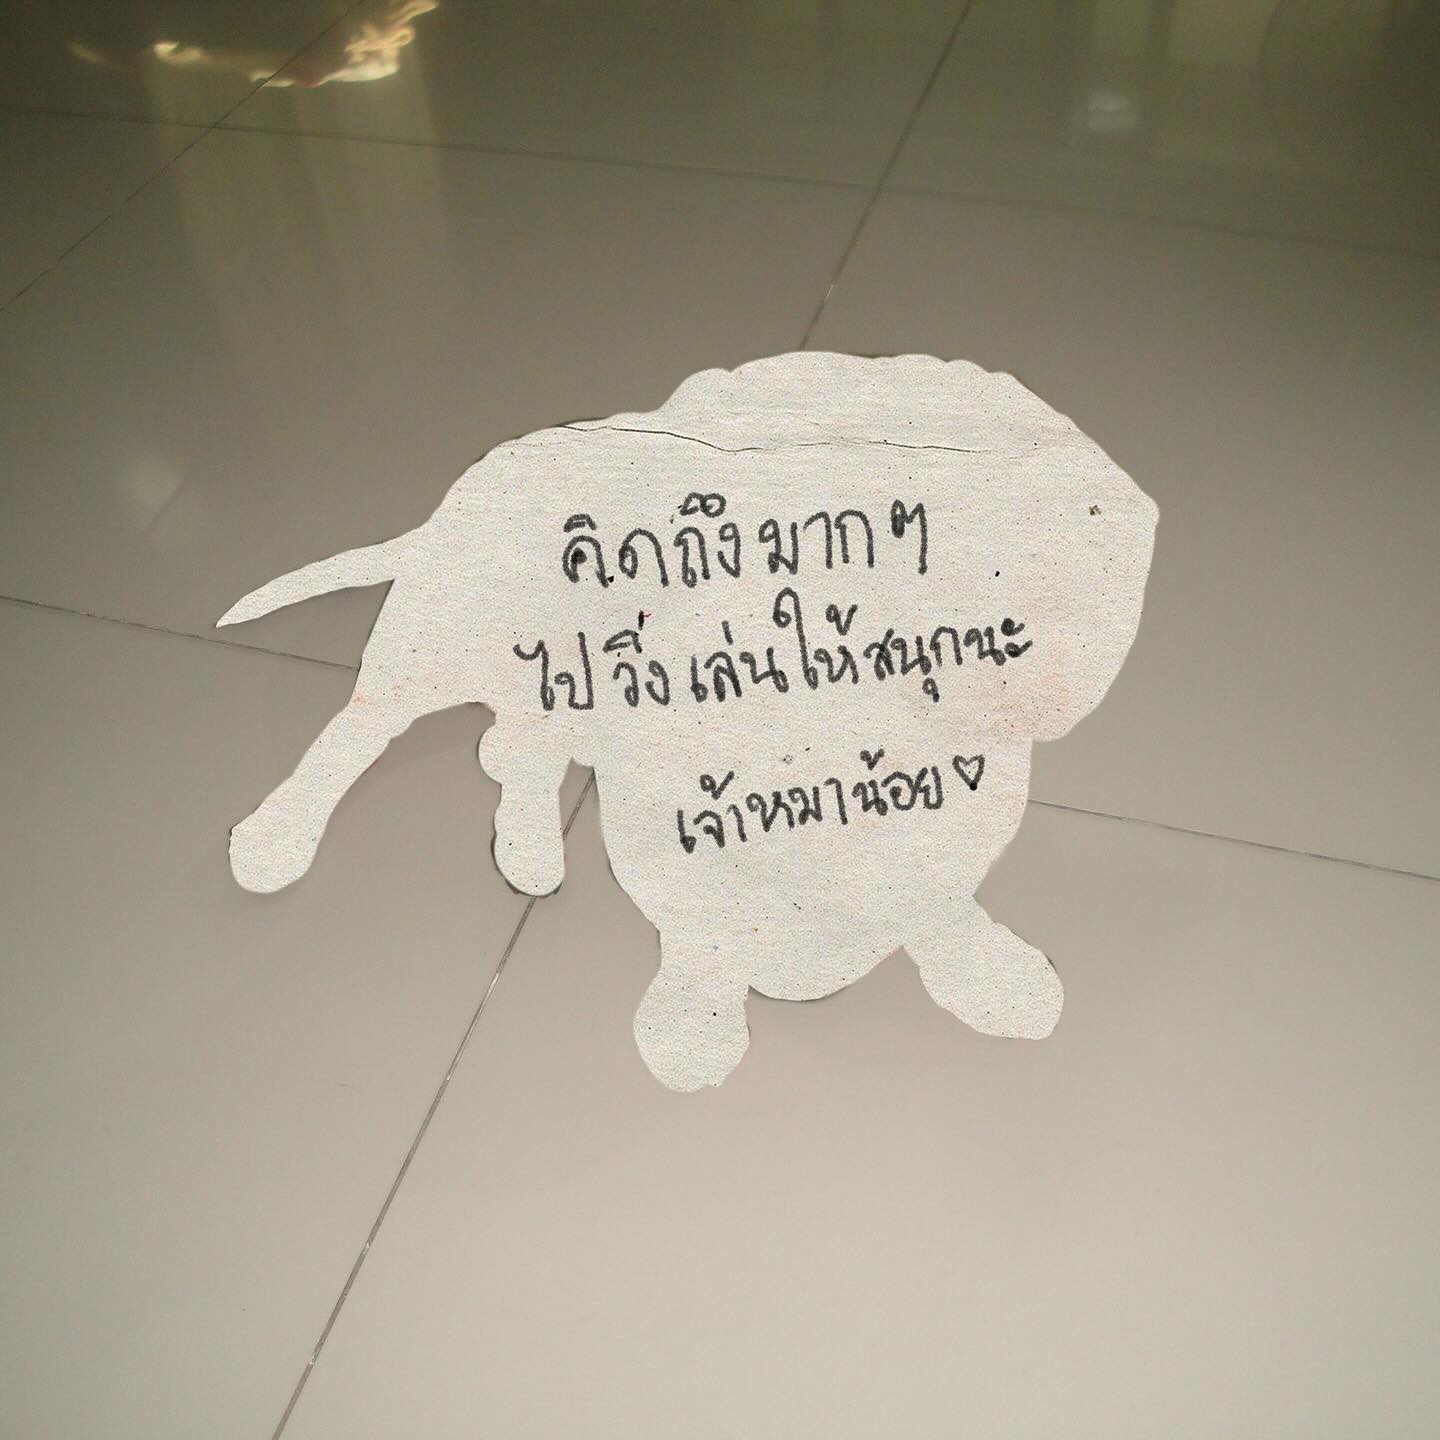 คิดถึงมากๆ
ไปวิ่งเล่นให้สนุกนะ
เจ้าหมาน้อย♡